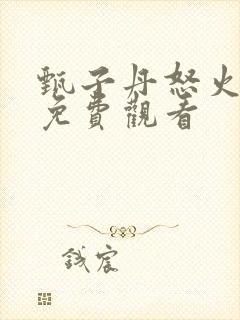 甄子丹怒火
免費觀看
钱宸